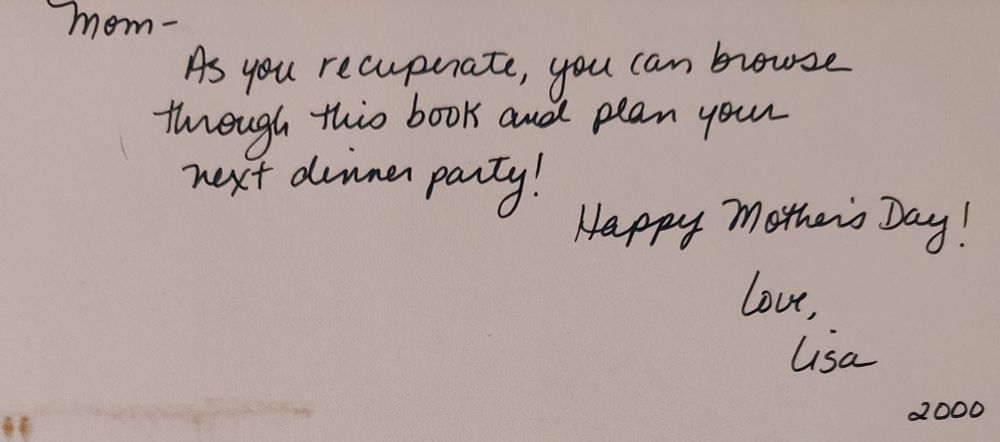 Mom-
As you recuperate, you can browse
through this book and plan your
next dinner party!
Happy Mother's Day!
Love,
Lisa
2000